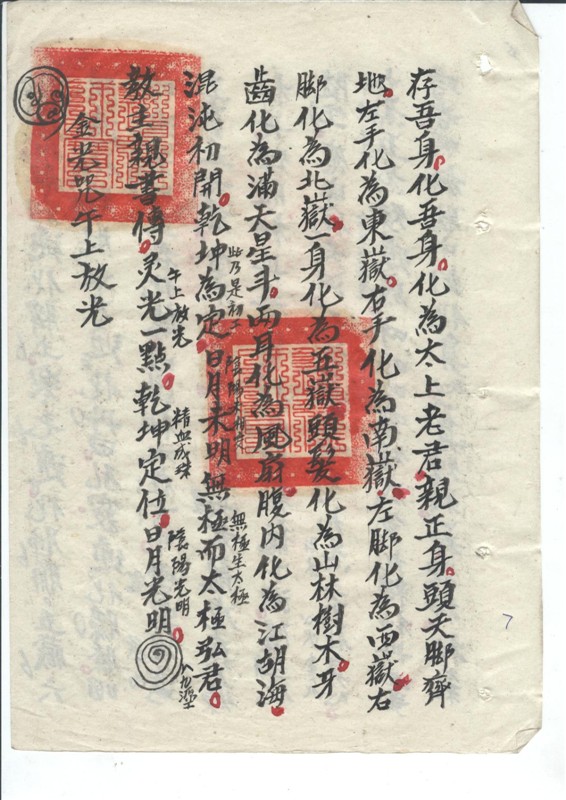 存吾身。化吾身。化為太上老君。親正身。頭天脚齊
地。左手化為東嶽。右手化為南嶽。左脚化為西嶽。右
脚化為北嶽。一身化為五嶽。頭髮化為山林樹木。牙
齒化為滿天星斗。而耳化為風扇。腹内化為江胡海。
此乃是初
無極生太極
混沌初開。乾坤為定。日月未明。無極而太極弘君。
午上放光
精血成珠
陰陽光明
教主親書傳。灵光一點。乾坤定位。日月光明。
金光咒午上放光
7